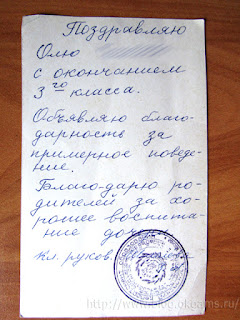 Поздравляю
Олю
с окончанием
3го класса.
Объявляю благо-
дарность за
примерное поведе-
ние.
Благодарю ро-
дителей за хо-
рошее воспита-
ние дочери
Кл. руков.